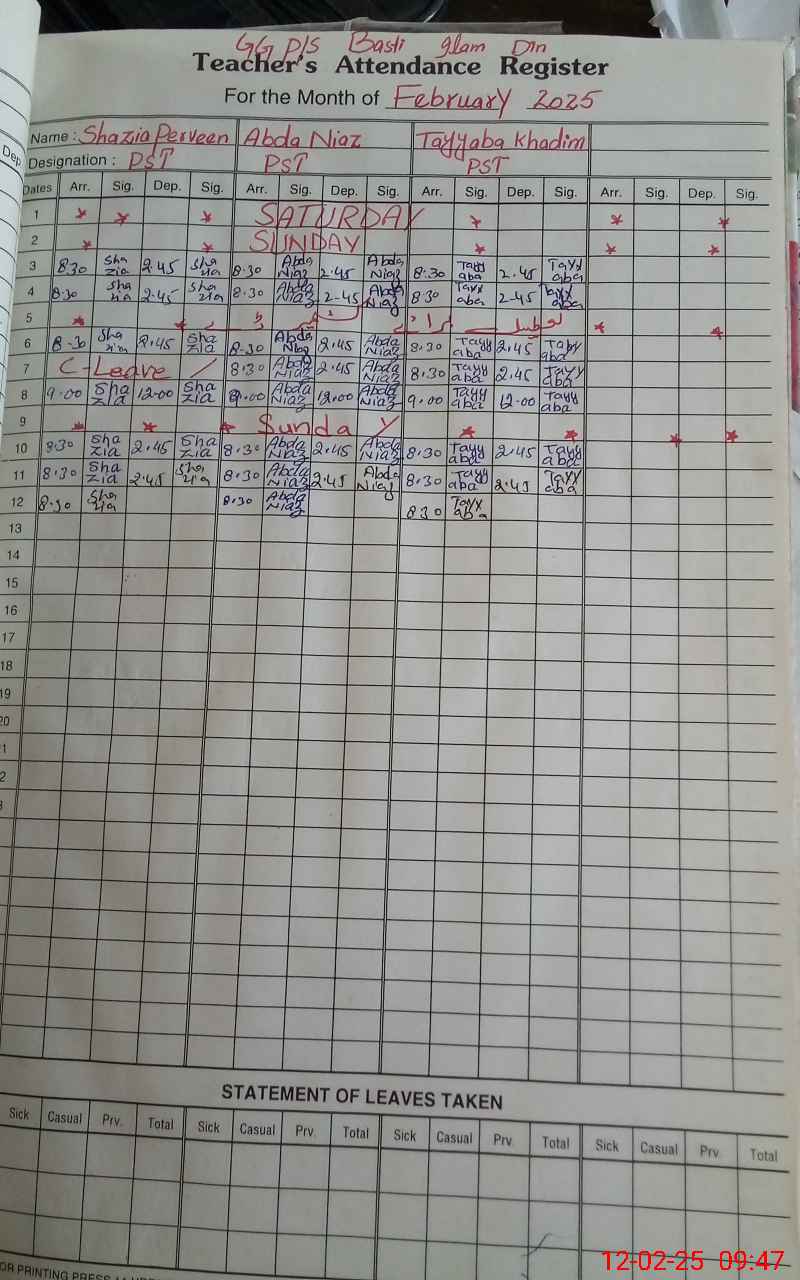 GG P/S Basti Glam Din
Teacher's Attendance Register
For the Month of February 2025
Name : Shazia Perveen Abda Niaz Tayyaba Khadim
Designation : PST PST PST
Dates Arr. Sig. Dep. Sig. Arr. Sig. Dep. Sig. Arr. Sig. Dep. Sig. Arr. Sig. Dep. Sig.
1 SATURDAY
2 SUNDAY
3 8.30 Shazia 2.45 Shazia 8.30 Abda Niaz 2.45 Abda Niaz 8.30 Tayyaba 2.45 Tayyaba
4 8.30 Shazia 2.45 Shazia 8.30 Abda Niaz 2.45 Abda Niaz 8.30 Tayyaba 2.45 Tayyaba
5 تعطیل
6 8.30 Shazia 2.45 Shazia 8.30 Abda Niaz 2.45 Abda Niaz 8.30 Tayyaba 2.45 Tayyaba
7 C-Leave / 8.30 Abda Niaz 2.45 Abda Niaz 8.30 Tayyaba 2.45 Tayyaba
8 9.00 Shazia 12.00 Shazia 9.00 Abda Niaz 12.00 Abda Niaz 9.00 Tayyaba 12.00 Tayyaba
9 Sunday
10 8.30 Shazia 2.45 Shazia 8.30 Abda Niaz 2.45 Abda Niaz 8.30 Tayyaba 2.45 Tayyaba
11 8.30 Shazia 2.45 Shazia 8.30 Abda Niaz 2.45 Abda Niaz 8.30 Tayyaba 2.45 Tayyaba
12 8.30 Shazia 8.30 Abda Niaz 8.30 Tayyaba
13
14
15
16
17
18
19
20
STATEMENT OF LEAVES TAKEN
Sick Casual Prv. Total Sick Casual Prv. Total Sick Casual Prv. Total Sick Casual Prv. Total
12-02-25 09:47